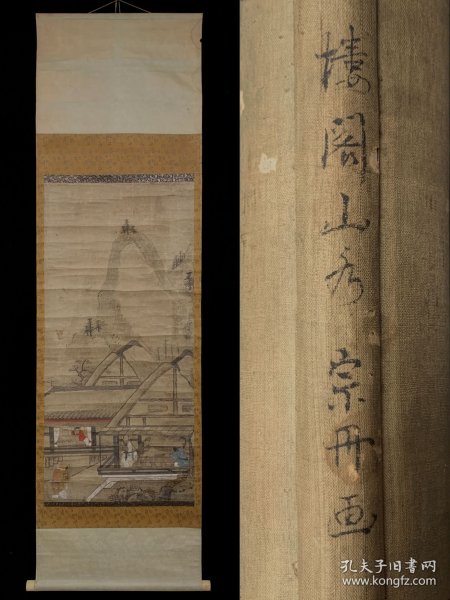 楼阁山秀宗丹画
孔夫子旧书网
www.kongfz.com